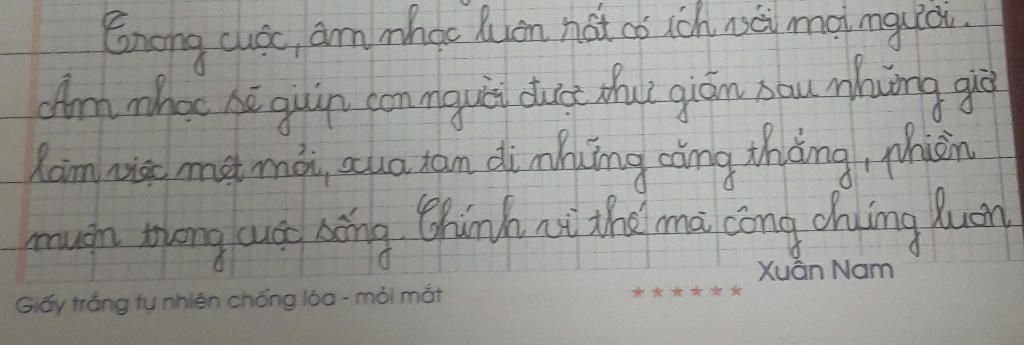 Trong cuộc, âm nhạc luôn rất có ích với mọi người.
Âm nhạc sẽ giúp con người được thư giãn sau những giờ
làm việc mệt mỏi, xua tan đi những căng thẳng, phiền
muộn trong cuộc sống. Chính vì thế mà công chúng luôn
Xuân Nam
Giấy trắng tự nhiên chống lóa - mỏi mắt